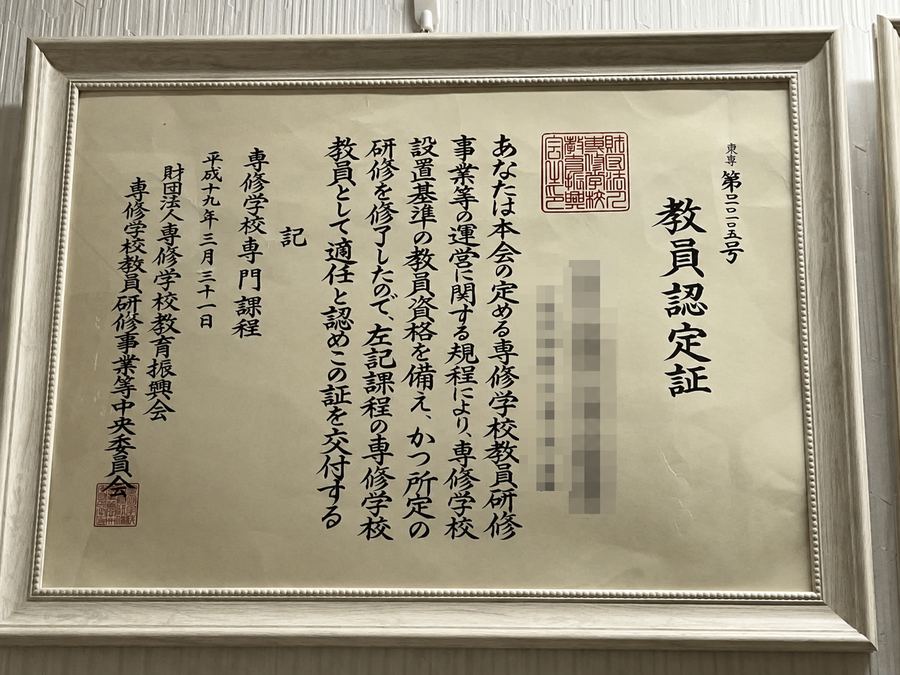 東専 第二二一〇五号
教員認定証
財団法人
専修学校
教育振興
会之印
あなたは本会の定める専修学校教員研修
事業等の運営に関する規程により、専修学校
設置基準の教員資格を備え、かつ所定の
研修を修了したので、左記課程の専修学校
教員として適任と認めこの証を交付する
記
専修学校専門課程
平成十九年三月三十一日
財団法人専修学校教育振興会
専修学校教員研修事業等中央委員会